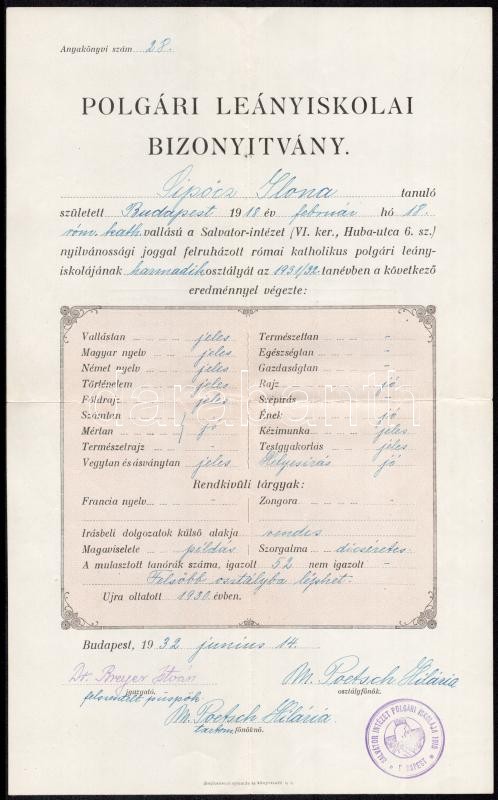 Anyakönyvi szám 28.
POLGÁRI LEÁNYISKOLAI
BIZONYITVÁNY.
Sipőcz Ilona tanuló
született Budapest 1918 év február hó 18.
róm. kath. vallású a Salvator-intézet (VI. ker., Huba-utca 6. sz.)
nyilvánossági joggal felruházott római katholikus polgári leány-
iskolájának harmadik osztályát az 1931/32 tanévben a következő
eredménnyel végezte:
Vallástan jeles Természettan -
Magyar nyelv jeles Egészségtan -
Német nyelv jeles Gazdaságtan -
Történelem jeles Rajz jó
Földrajz jeles Szépirás -
Számtan Ének jó
Mértan jó Kézimunka jeles
Természetrajz - Testgyakorlás jeles
Vegytan és ásványtan jeles Helyesírás jó
Rendkivüli tárgyak:
Francia nyelv - Zongora -
Irásbeli dolgozatok külső alakja rendes
Magaviselete példás Szorgalma dicséretes
A mulasztott tanórák száma, igazolt 52 nem igazolt -
Felsőbb osztályba léphet.
Ujra oltatott 1930. évben.
Budapest, 1932 junius 14.
Dr. Breyer István M. Poetsch Hilária
igazgató, osztályfőnök.
felszentelt püspök
M. Poetsch Hilária
tartom. főnöknő.
SALVATOR INTÉZET POLGÁRI ISKOLÁJA
BUDAPEST
darabanth